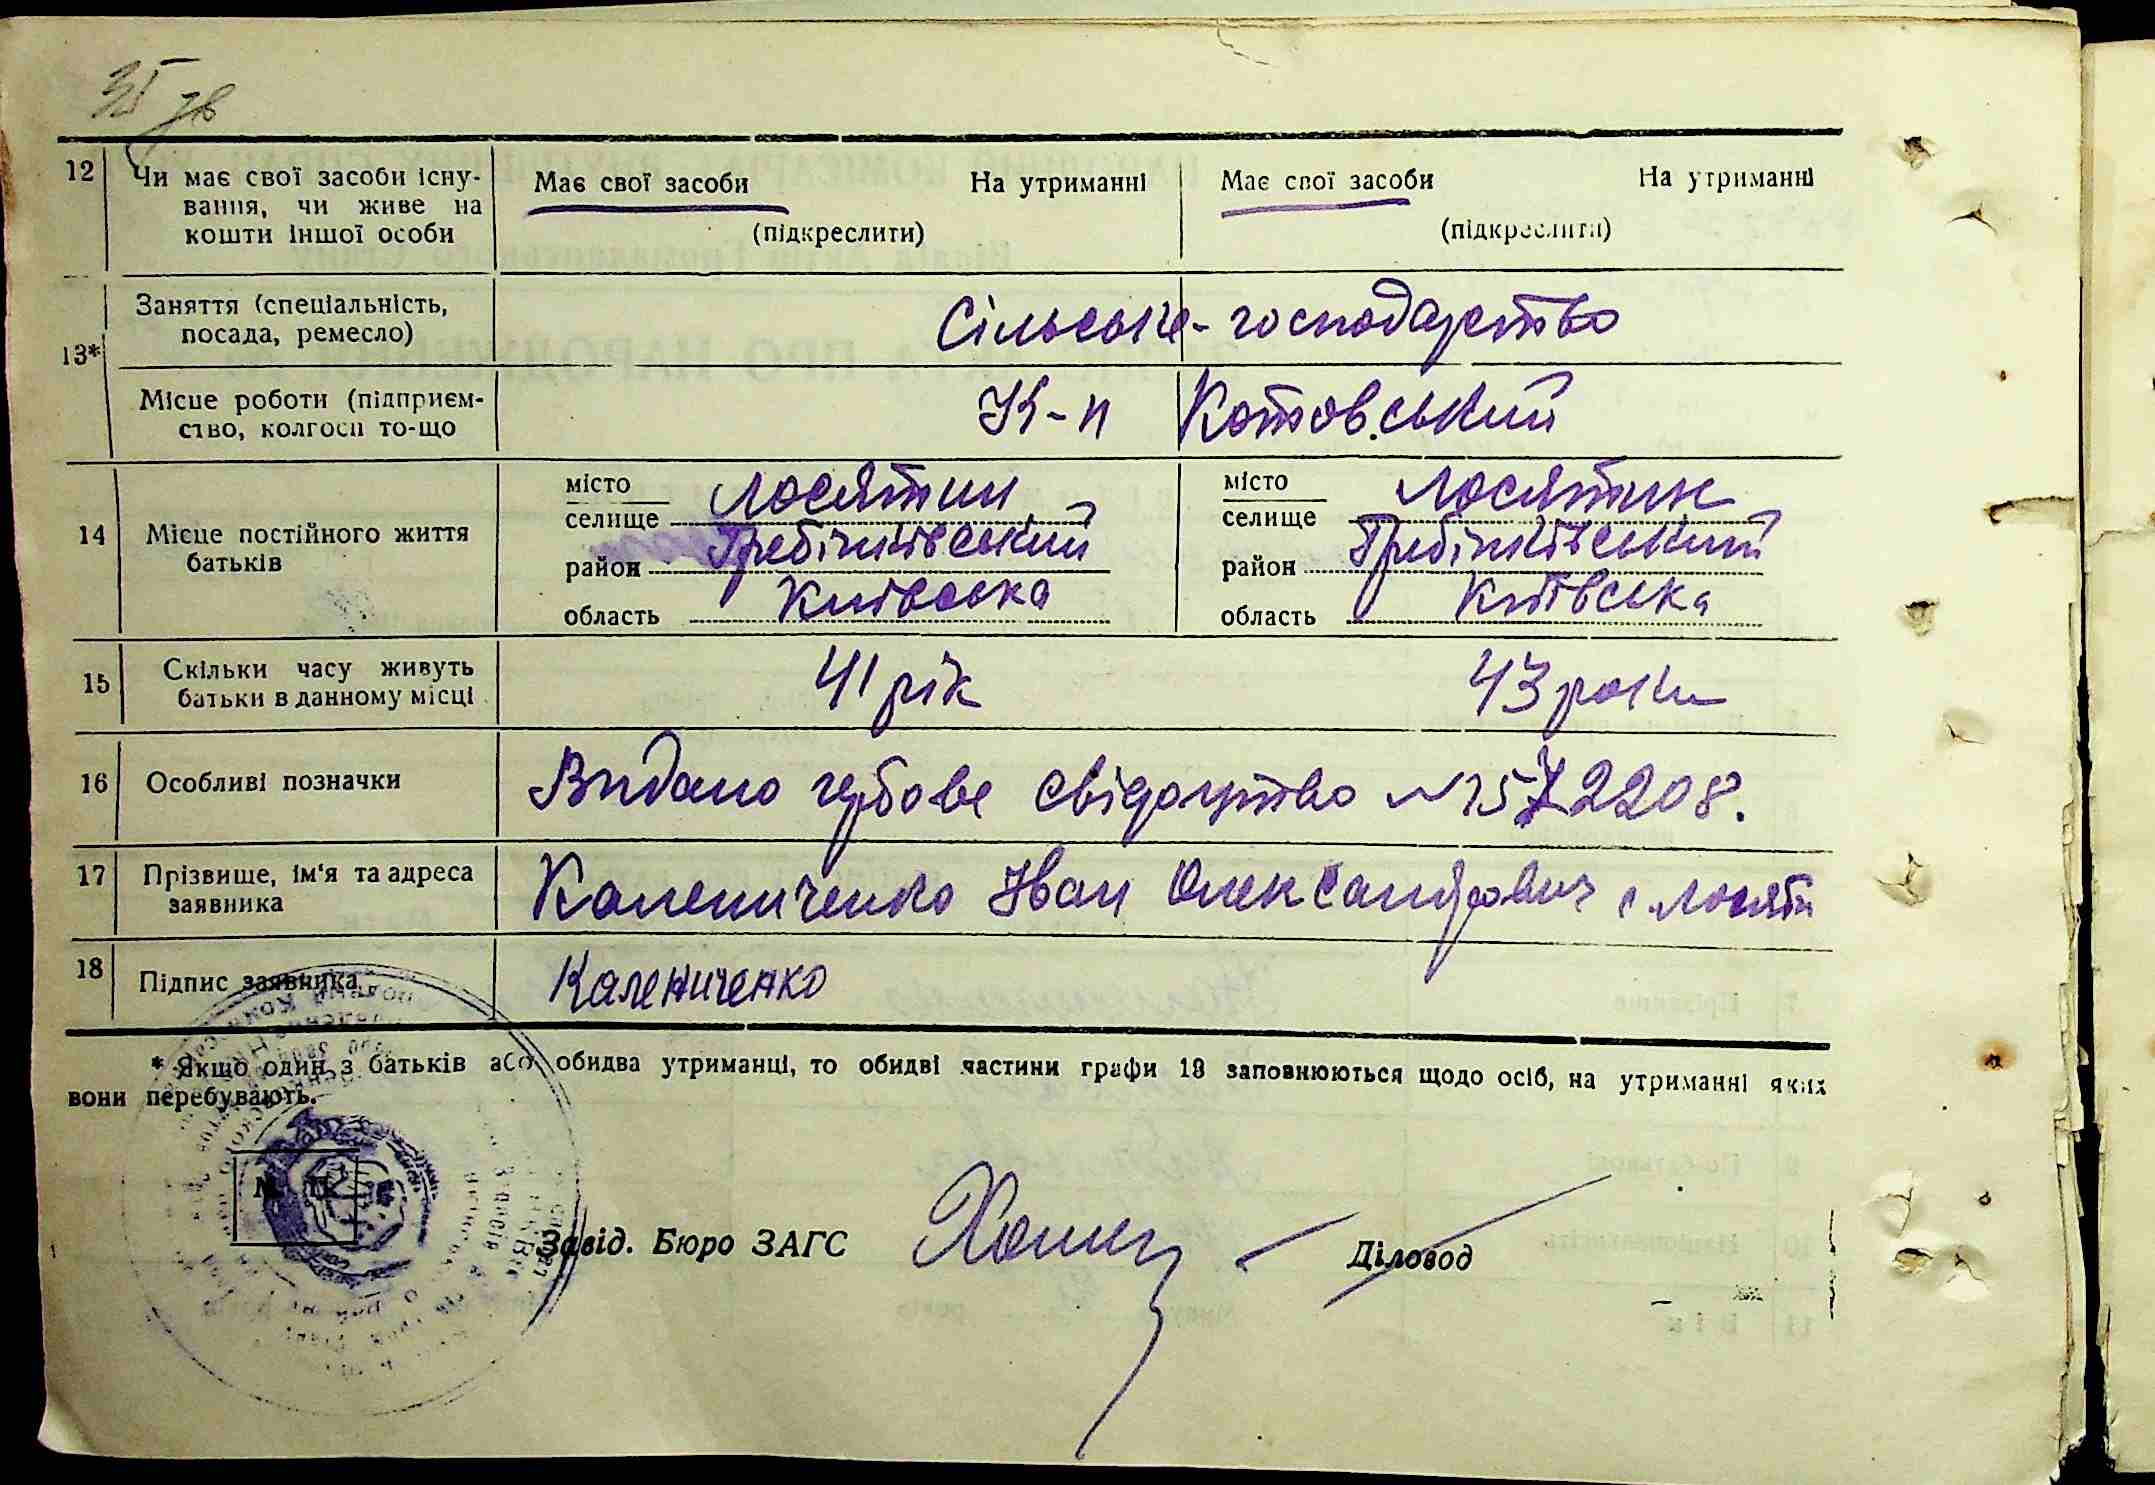 35 зв
12 Чи має свої засоби існу- Має свої засоби На утриманні Має свої засоби На утриманні
вання, чи живе на
кошти іншої особи (підкреслити) (підкреслити)
13* Заняття (спеціальність, Сільське-господарство
посада, ремесло)
Місце роботи (підприєм- К-п Котовський
ство, колгосп то-що
14 Місце постійного життя батьків
місто Лосятин місто Лосятин
селище селище
район Гребінківський район Гребінківський
область Київська область Київська
15 Скільки часу живуть 41 рік 43 роки
батьки в данному місці
16 Особливі позначки Видано гербове свідоцтво №572208.
17 Прізвище, ім'я та адреса Калениченко Іван Олександрович с. Лосятн
заявника
18 Підпис заявника Калениченко
* Якщо один з батьків або обидва утриманці, то обидві частини графи 13 заповнюються щодо осіб, на утриманні яких
вони перебувають.
М. П.
Завід. Бюро ЗАГС Діловод